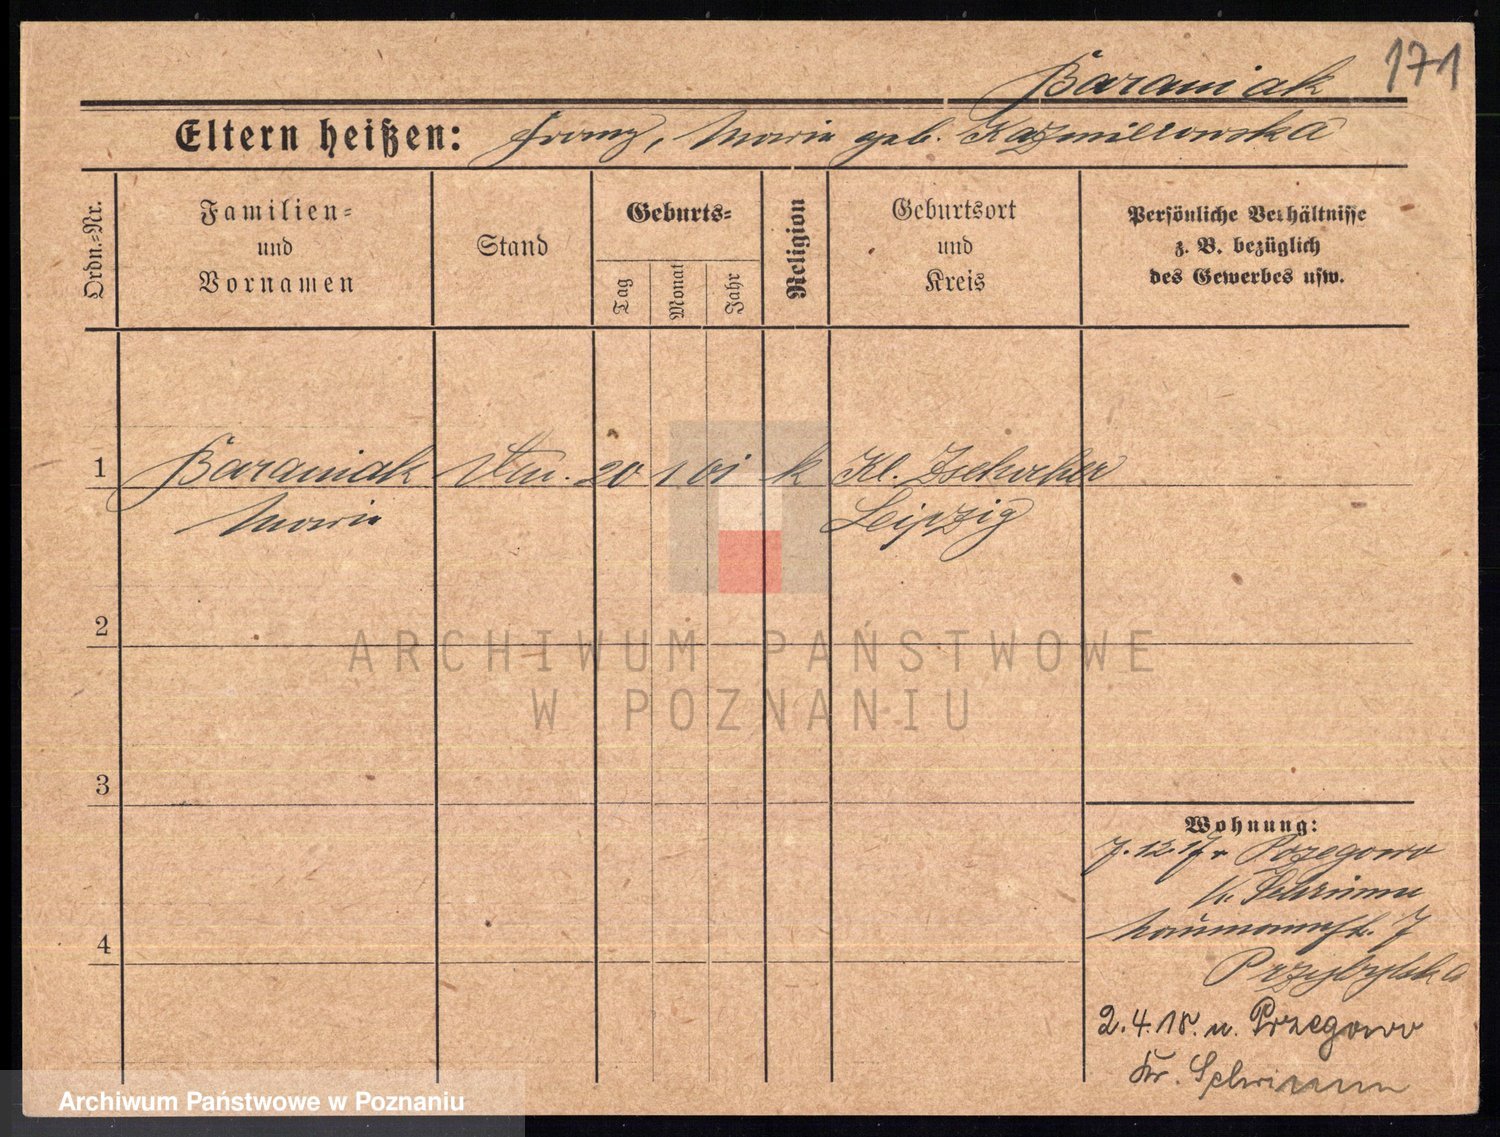 171
Baraniak
Eltern heißen: Franz, Maria geb. Kazmierowska
Ordn.=Nr.
Familien=
und
Vornamen
Stand
Geburts=
Tag
Monat
Jahr
Religion
Geburtsort
und
Kreis
Persönliche Verhältnisse
z. B. bezüglich
des Gewerbes usw.
1 Baraniak 20 1 01 k Kl. Zschocher
Maria Leipzig
2
3
4
Wohnung:
7.12.17 v. Pozegowo
Kr. Schrimm
Naumannstr. 7
Przybylska
2.4.18. n. Przegowo
Kr. Schrimm
ARCHIWUM PAŃSTWOWE
W POZNANIU
Archiwum Państwowe w Poznaniu